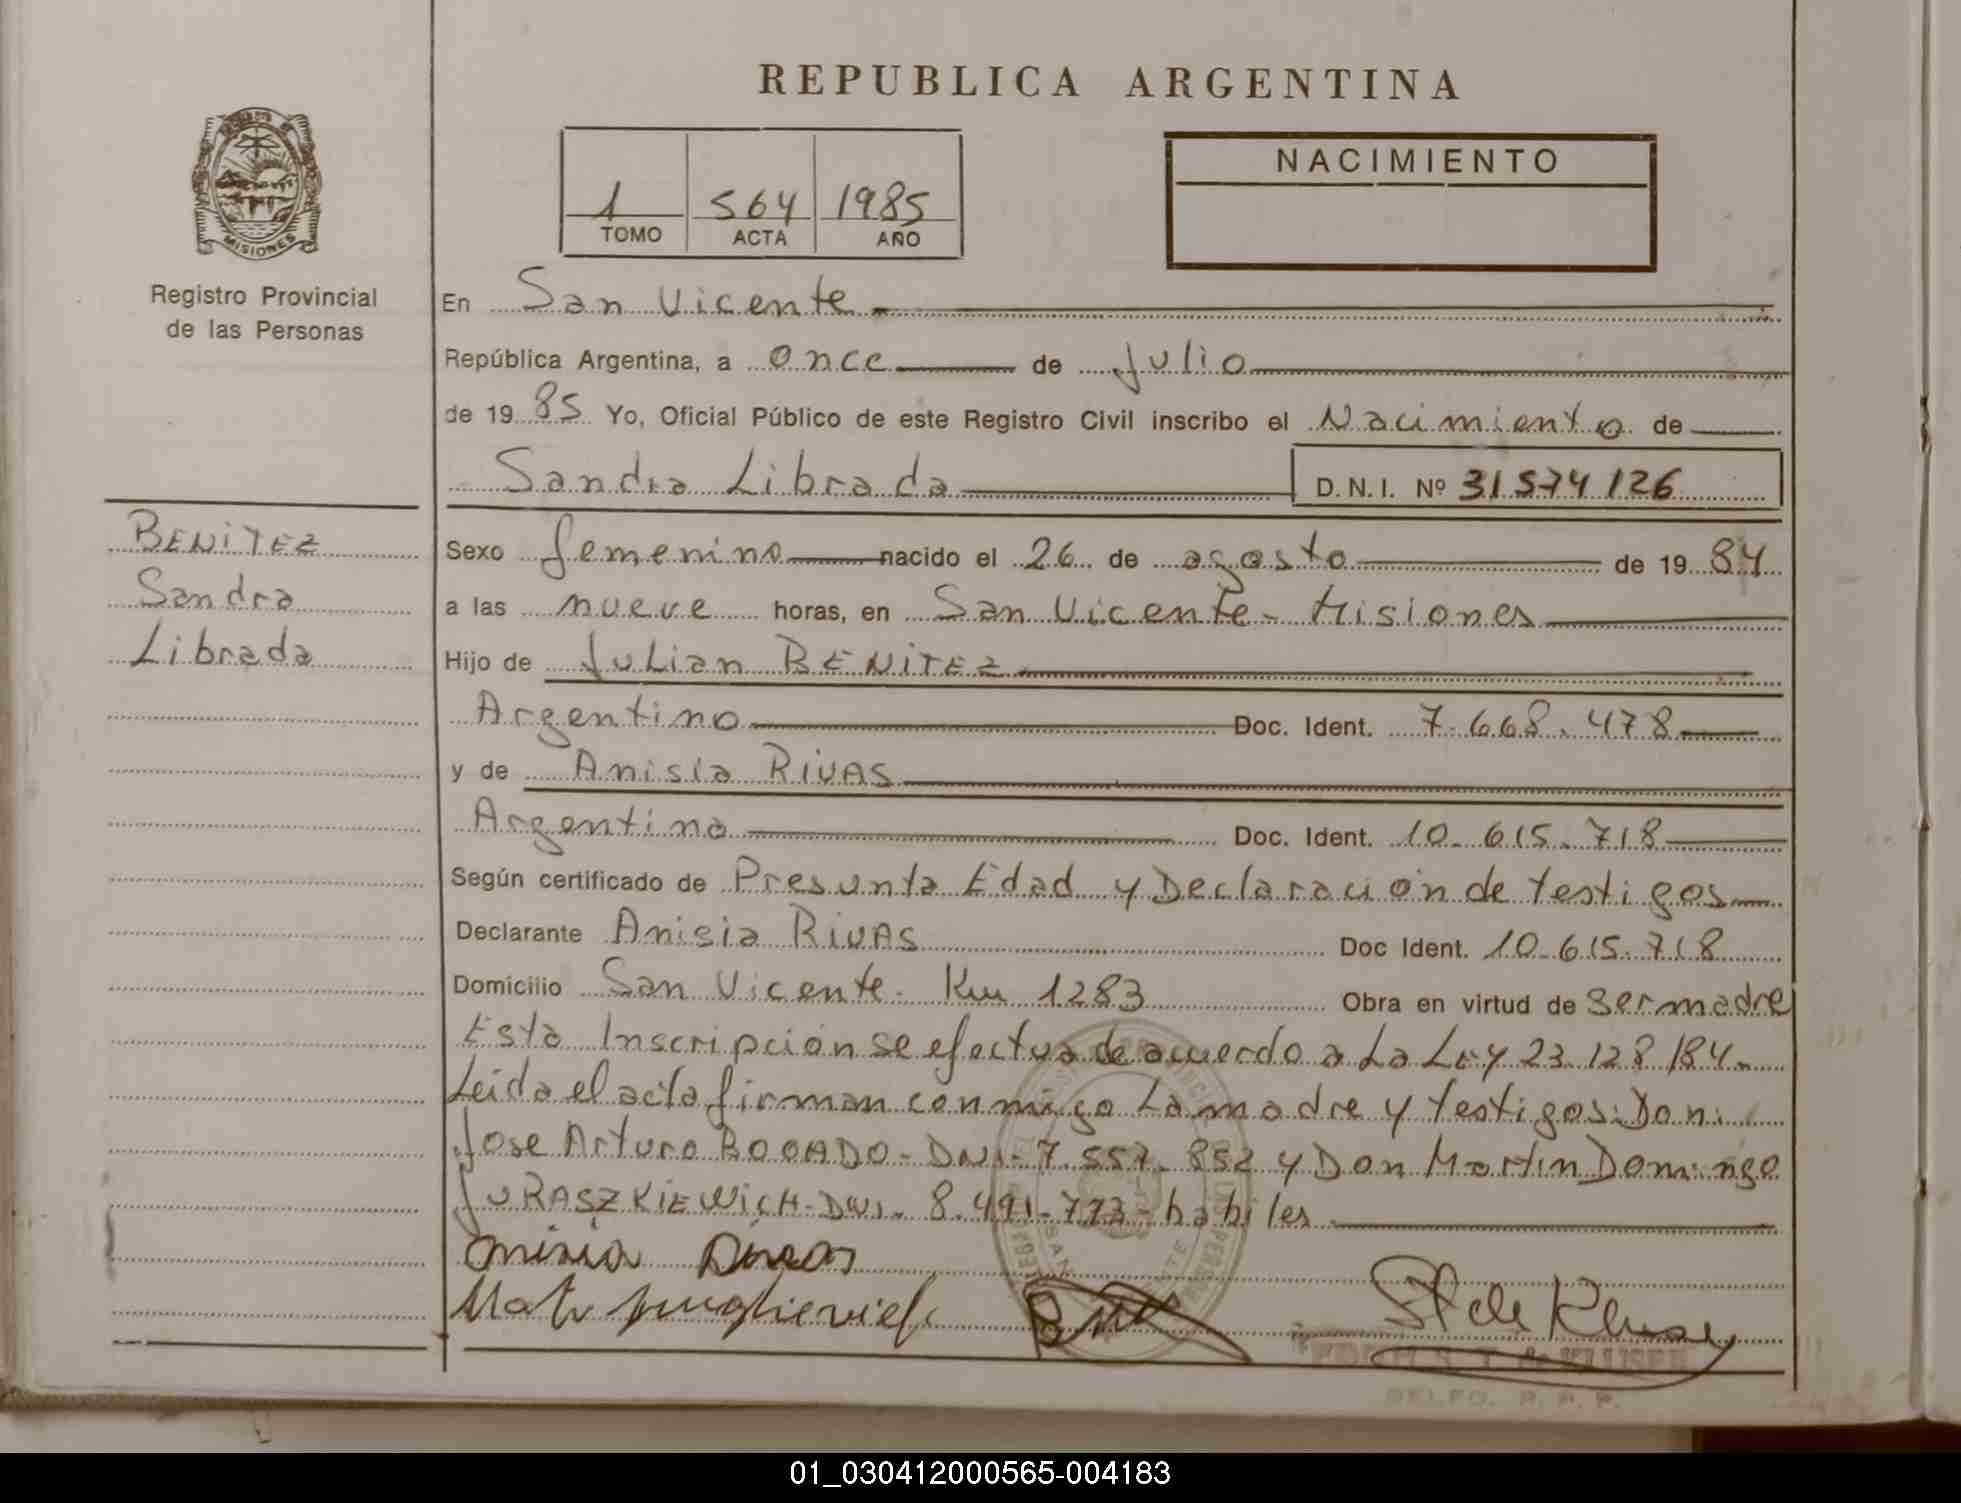 REPUBLICA ARGENTINA
MISIONES
Registro Provincial
de las Personas
1 564 1985
TOMO ACTA AÑO
NACIMIENTO
En San Vicente
República Argentina, a once de Julio
de 1985 Yo, Oficial Público de este Registro Civil inscribo el Nacimiento de
Sandra Librada D.N.I. Nº 31574126
BENITEZ
Sandra
Librada
Sexo femenino nacido el 26 de agosto de 1984
a las nueve horas, en San Vicente - Misiones
Hijo de Julian BENITEZ
Argentino Doc. Ident. 7.668.478
y de Anisia RIVAS
Argentina Doc. Ident. 10.615.718
Según certificado de Presunta Edad y Declaración de testigos
Declarante Anisia RIVAS Doc Ident. 10.615.718
Domicilio San Vicente - Km 1283 Obra en virtud de ser madre
Esta Inscripción se efectua de acuerdo a La Ley 23.128/84.-
Leida el acta firman conmigo La madre y testigos: Don:
Jose Arturo BOGADO - DNI - 7.557.852 y Don Martin Domingo
JURASZKIEWICH - DNI. 8.491.773 - habiles